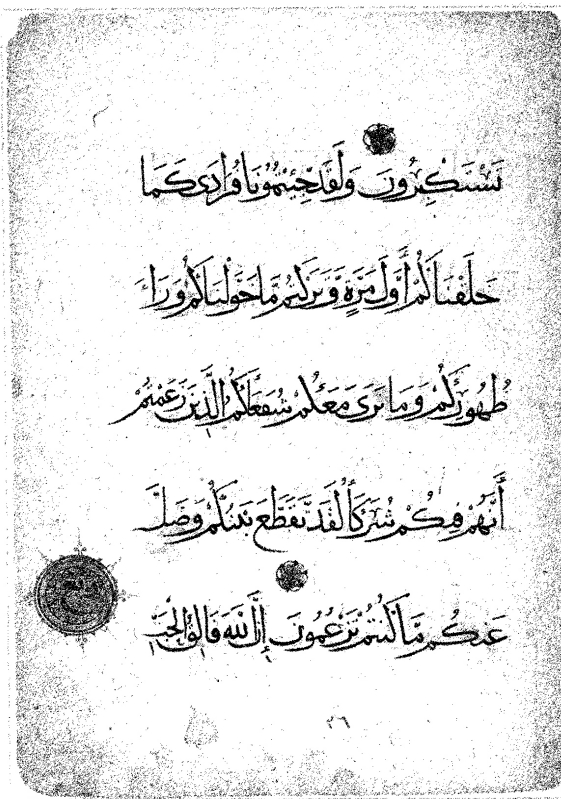 تَسْتَكْبِرُونَ وَلَقَدْ جِئْتُمُونَا فُرَادَى كَمَا
خَلَقْنَاكُمْ أَوَّلَ مَرَّةٍ وَتَرَكْتُم مَّا خَوَّلْنَاكُمْ وَرَاءَ
ظُهُورِكُمْ وَمَا نَرَى مَعَكُمْ شُفَعَاءَكُمُ الَّذِينَ زَعَمْتُمْ
أَنَّهُمْ فِيكُمْ شُرَكَاءُ لَقَد تَّقَطَّعَ بَيْنَكُمْ وَضَلَّ
عَنكُم مَّا كُنتُمْ تَزْعُمُونَ إِنَّ اللَّهَ فَالِقُ الْحَبِّ
٢٦